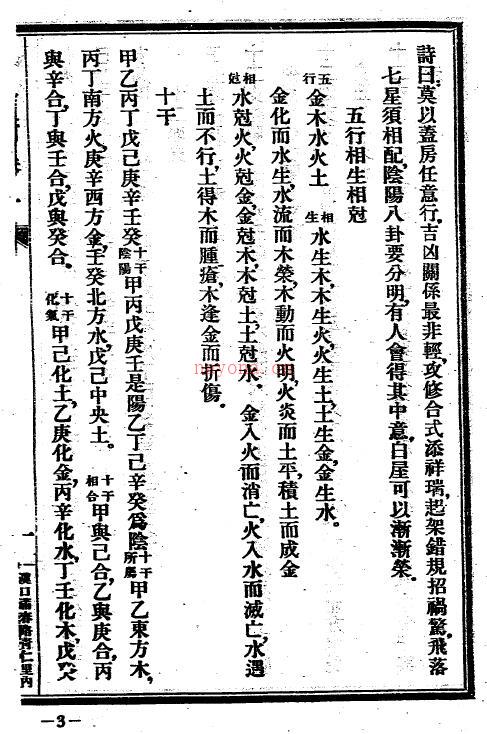 詩曰、莫以蓋房任意行、吉凶關係最非輕、攻修合式添祥瑞、起架錯規招禍驚、飛落
七星須相配、陰陽八卦要分明、有人會得其中意、白屋可以漸漸榮。
五行相生相尅
五行 金木水火土 相生 水生木、木生火、火生土、土生金、金生水。
金化而水生、水流而木榮、木動而火明、火炎而土平、積土而成金
相尅 水尅火、火尅金、金尅木、木尅土、土尅水。 金入火而消亡、火入水而滅亡、水遇
土而不行、土得木而腫瘡、木逢金而折傷。
十干
甲乙丙丁戊己庚辛壬癸 十干陰陽 甲丙戊庚壬是陽乙丁己辛癸爲陰 十干所屬 甲乙東方木、
丙丁南方火、庚辛西方金、壬癸北方水、戊己中央土。 十干相合 甲與己合、乙與庚合、丙
與辛合、丁與壬合、戊與癸合。 十干化氣 甲己化土、乙庚化金、丙辛化水、丁壬化木、戊癸
一
漢口 路 仁里內
—3—
nayona.cn